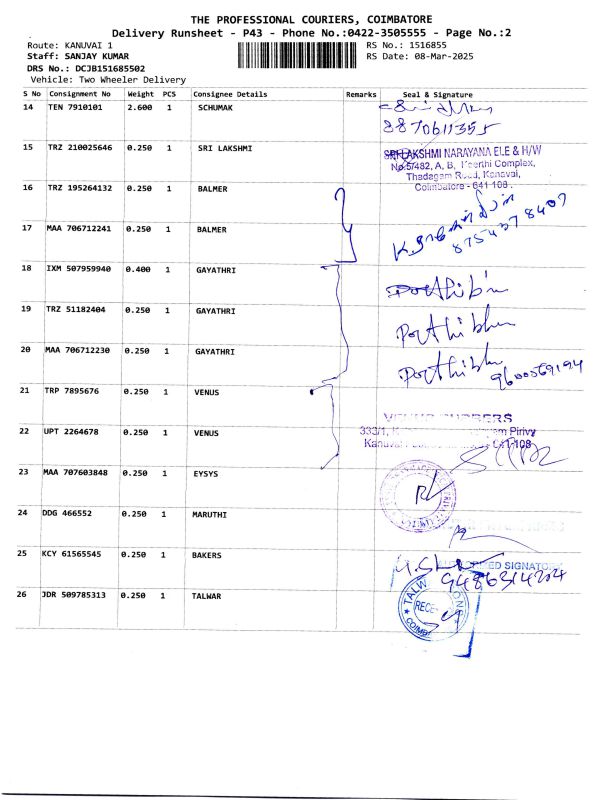 THE PROFESSIONAL COURIERS, COIMBATORE
Delivery Runsheet - P43 - Phone No.:0422-3505555 - Page No.:2
Route: KANUVAI 1
RS No.: 1516855
Staff: SANJAY KUMAR
RS Date: 08-Mar-2025
DRS No.: DCJB151685502
Vehicle: Two Wheeler Delivery
S No Consignment No Weight PCS Consignee Details Remarks Seal & Signature
14 TEN 7910101 2.600 1 SCHUMAK
8870611355
15 TRZ 210025646 0.250 1 SRI LAKSHMI
SRI LAKSHMI NARAYANA ELE & H/W
No.5/482, A, B, Keerthi Complex,
Thadagam Road, Kanuvai,
Coimbatore - 641 108.
16 TRZ 195264132 0.250 1 BALMER
17 MAA 706712241 0.250 1 BALMER
18 IXM 507959940 0.400 1 GAYATHRI
19 TRZ 51182404 0.250 1 GAYATHRI
Parthibhan
20 MAA 706712230 0.250 1 GAYATHRI
9600569194
21 TRP 7895676 0.250 1 VENUS
22 UPT 2264678 0.250 1 VENUS
333/1, Pirivu
Kanuvai 641-108
23 MAA 707603848 0.250 1 EYSYS
24 DDG 466552 0.250 1 MARUTHI
25 KCY 61565545 0.250 1 BAKERS
SIGNATORY
9486314204
26 JDR 509785313 0.250 1 TALWAR
TALW
RECE
COIMB